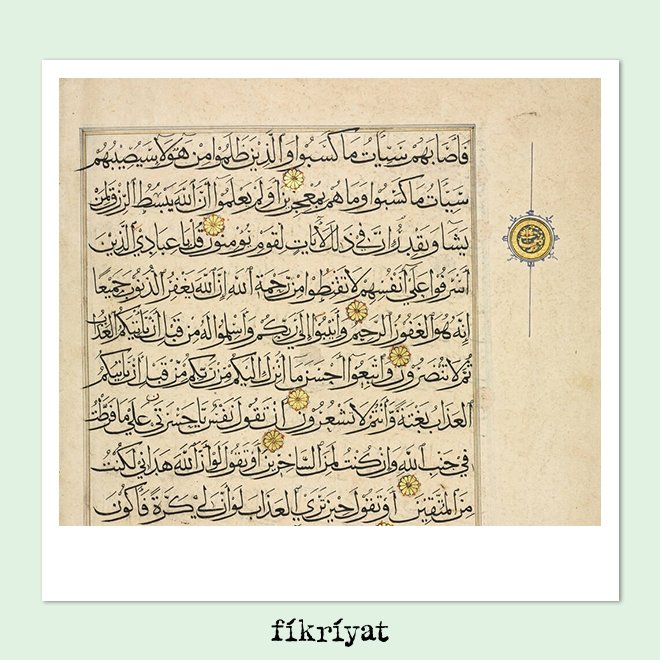 فاصابهم سيئات ما كسبوا والذين ظلموا من هؤلاء سيصيبهم
سيئات ما كسبوا وما هم بمعجزين او لم يعلموا ان الله يبسط الرزق لمن
يشاء ويقدر ان في ذلك لايات لقوم يؤمنون قل يا عبادي الذين
اسرفوا على انفسهم لا تقنطوا من رحمة الله ان الله يغفر الذنوب جميعا
انه هو الغفور الرحيم وانيبوا الى ربكم واسلموا له من قبل ان ياتيكم العذاب
ثم لا تنصرون واتبعوا احسن ما انزل اليكم من ربكم من قبل ان ياتيكم
العذاب بغتة وانتم لا تشعرون ان تقول نفس يا حسرتى على ما فرطت
في جنب الله وان كنت لمن الساخرين او تقول لو ان الله هداني لكنت
من المتقين او تقول حين ترى العذاب لو ان لي كرة فاكون
fikriyat